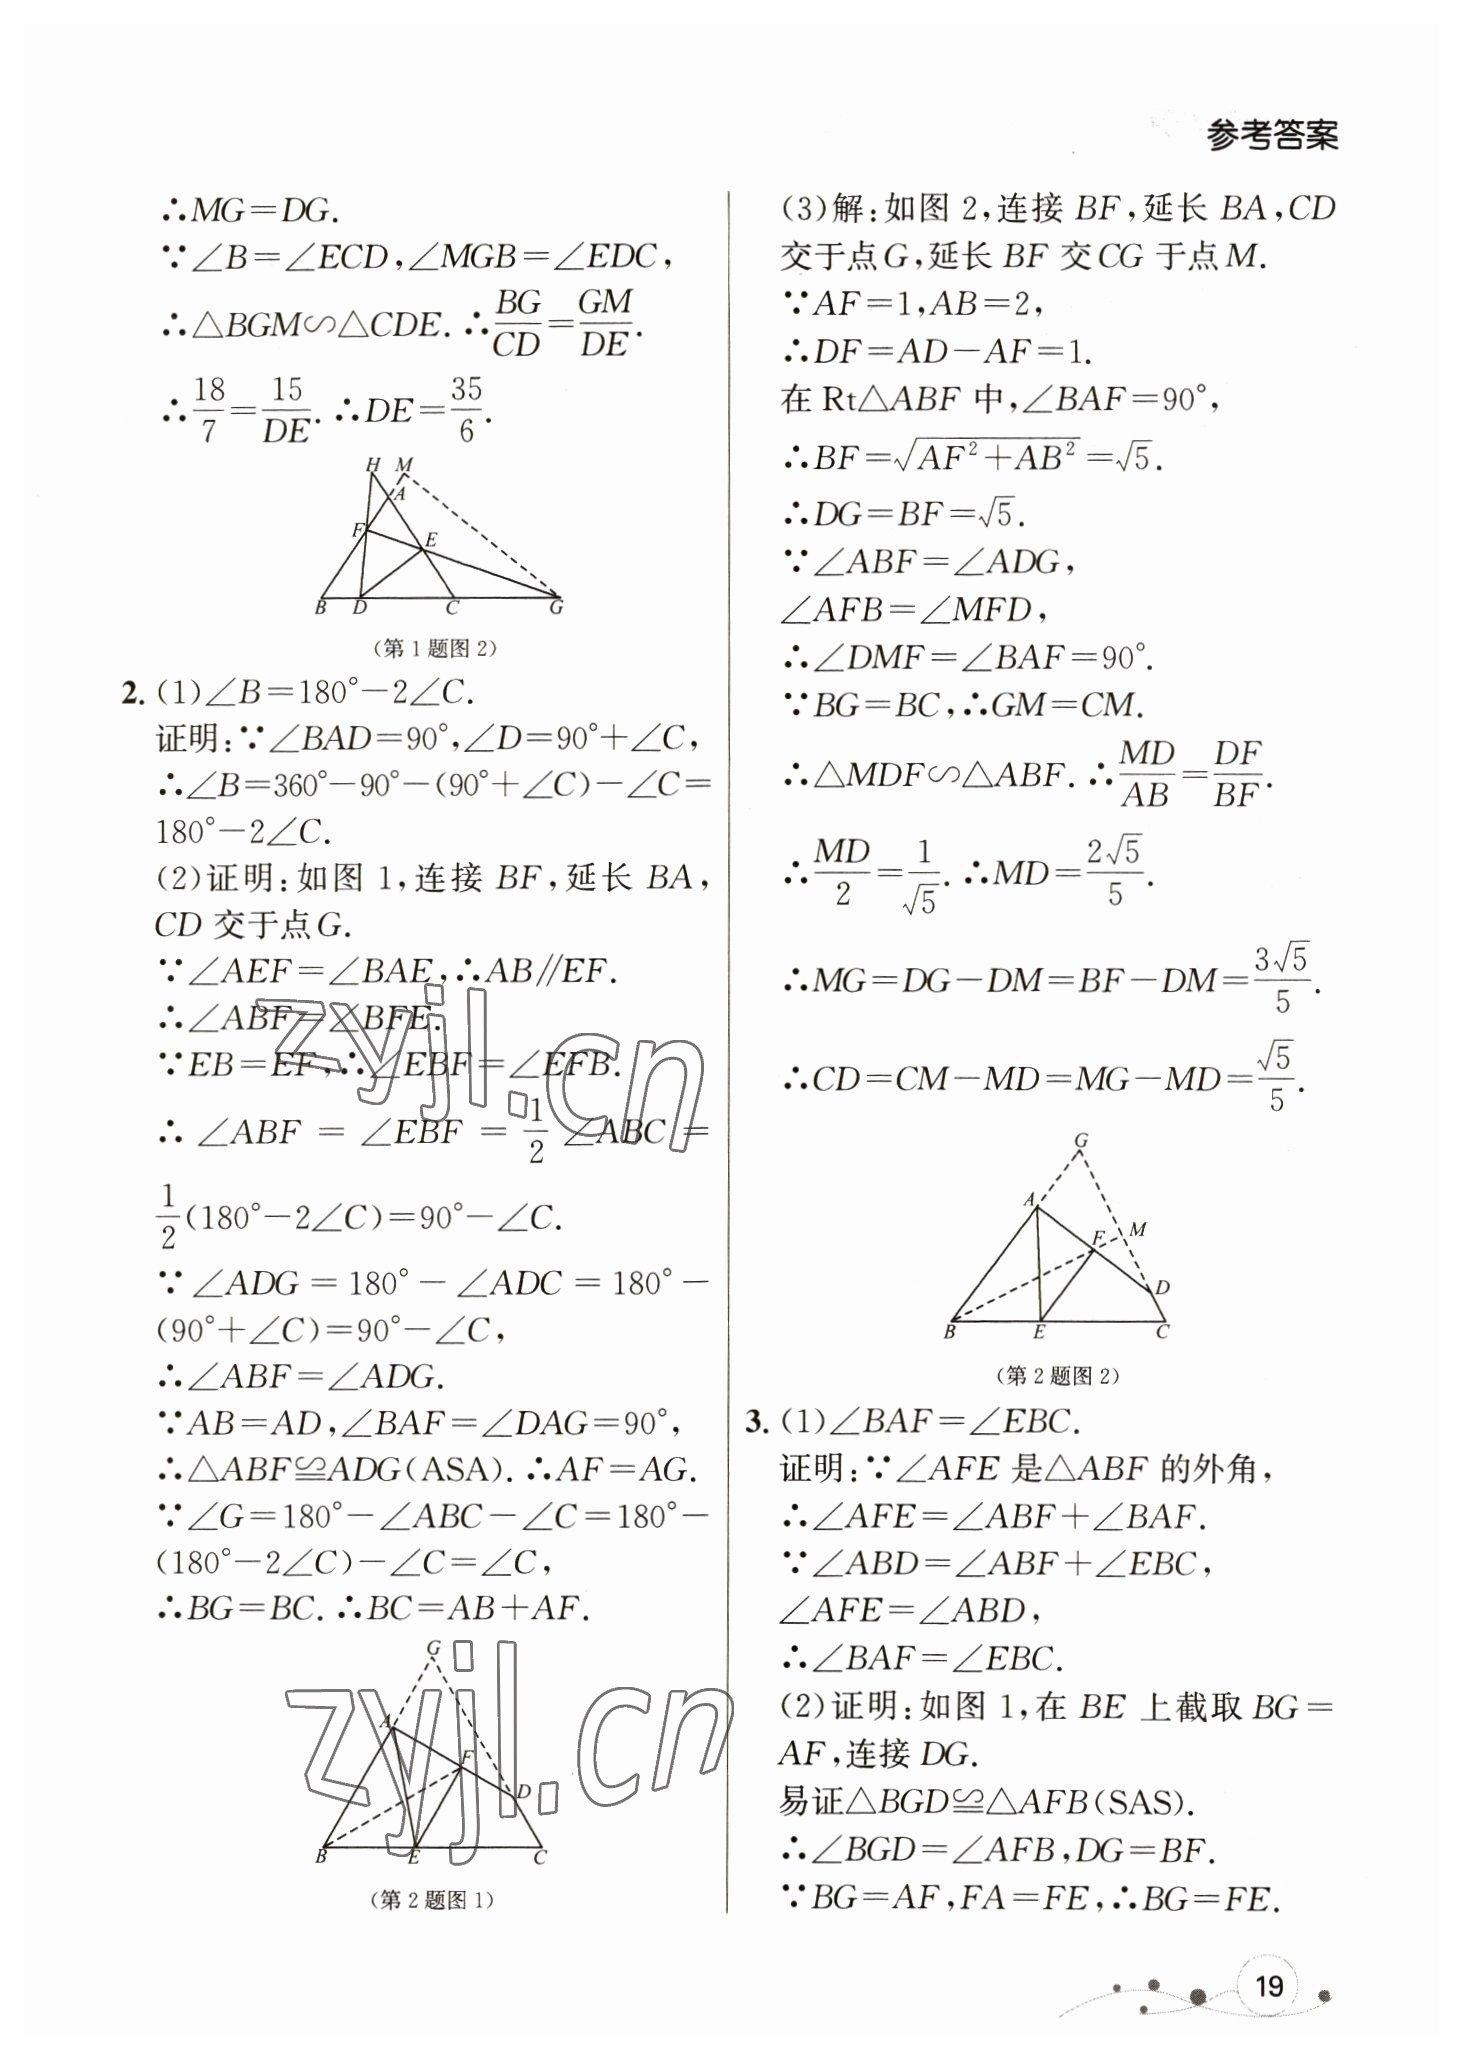 参考答案
∴MG=DG.
∵∠B=∠ECD,∠MGB=∠EDC,
∴△BGM∽△CDE. ∴BG/CD=GM/DE.
∴18/7=15/DE. ∴DE=35/6.
H M
A
F
E
B D C G
(第1题图2)
2. (1)∠B=180°-2∠C.
证明:∵∠BAD=90°,∠D=90°+∠C,
∴∠B=360°-90°-(90°+∠C)-∠C=
180°-2∠C.
(2)证明:如图1,连接BF,延长BA,
CD交于点G.
∵∠AEF=∠BAE,∴AB∥EF.
∴∠ABF=∠BFE.
∵EB=EF,∴∠EBF=∠EFB.
∴∠ABF=∠EBF=1/2∠ABC=
1/2(180°-2∠C)=90°-∠C.
∵∠ADG=180°-∠ADC=180°-
(90°+∠C)=90°-∠C,
∴∠ABF=∠ADG.
∵AB=AD,∠BAF=∠DAG=90°,
∴△ABF≌ADG(ASA). ∴AF=AG.
∵∠G=180°-∠ABC-∠C=180°-
(180°-2∠C)-∠C=∠C,
∴BG=BC. ∴BC=AB+AF.
G
A
F
D
B E C
(第2题图1)
(3)解:如图2,连接BF,延长BA,CD
交于点G,延长BF交CG于点M.
∵AF=1,AB=2,
∴DF=AD-AF=1.
在Rt△ABF中,∠BAF=90°,
∴BF=√(AF²+AB²)=√5.
∴DG=BF=√5.
∵∠ABF=∠ADG,
∠AFB=∠MFD,
∴∠DMF=∠BAF=90°.
∵BG=BC,∴GM=CM.
∴△MDF∽△ABF. ∴MD/AB=DF/BF.
∴MD/2=1/√5. ∴MD=2√5/5.
∴MG=DG-DM=BF-DM=3√5/5.
∴CD=CM-MD=MG-MD=√5/5.
G
A
F M
D
B E C
(第2题图2)
3. (1)∠BAF=∠EBC.
证明:∵∠AFE是△ABF的外角,
∴∠AFE=∠ABF+∠BAF.
∵∠ABD=∠ABF+∠EBC,
∠AFE=∠ABD,
∴∠BAF=∠EBC.
(2)证明:如图1,在BE上截取BG=
AF,连接DG.
易证△BGD≌△AFB(SAS).
∴∠BGD=∠AFB,DG=BF.
∵BG=AF,FA=FE,∴BG=FE.
19
zyjl.cn
zyjl.cn